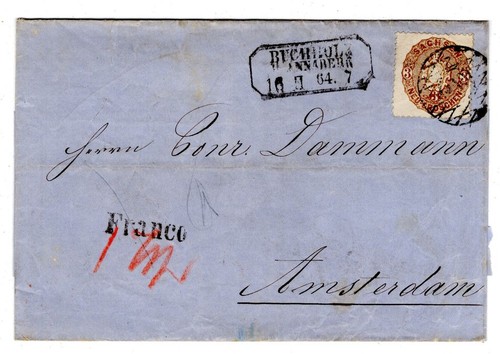 BUCHHOLZ
B. ANNABERG
16 II 64. 7
SACHSEN
NEUGROSCHEN
Herrn Conr. Dammann
Franco
Amsterdam